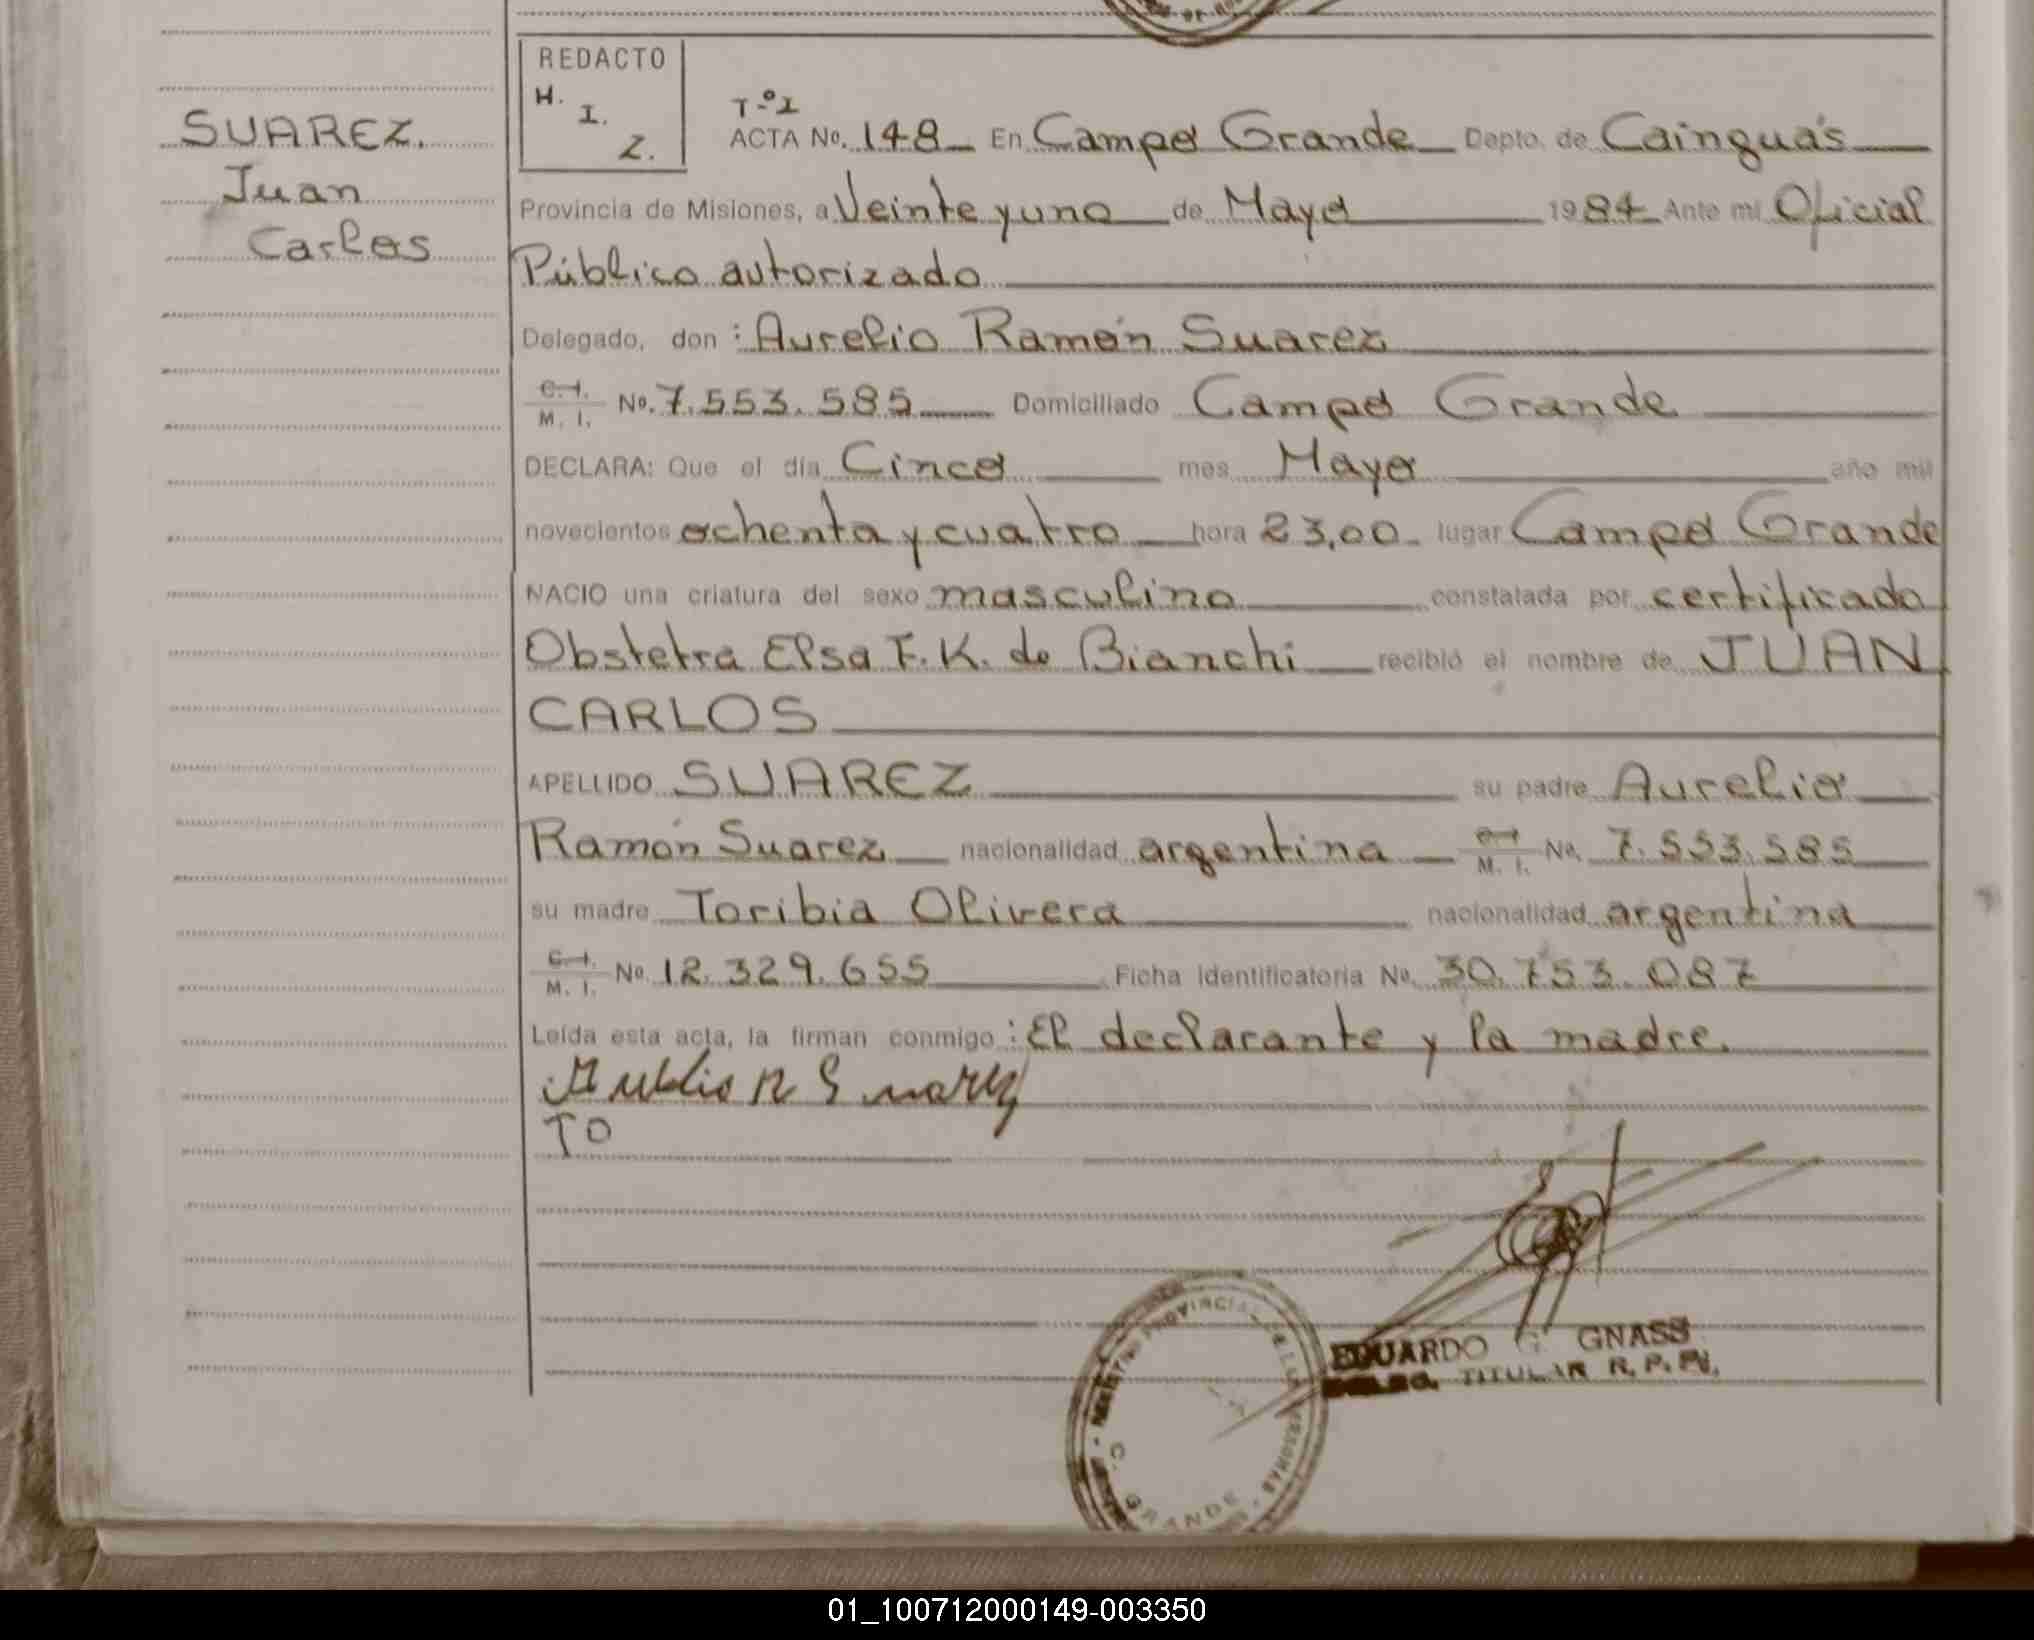 REDACTO
H.
I.
Z.
SUAREZ.
Juan
Carlos
T-º I
ACTA No. 148 En Campo Grande Depto. de Cainguás
Provincia de Misiones, a Veinte y uno de Mayo 1984 Ante mi Oficial
Público autorizado
Delegado, don : Aurelio Ramón Suarez
C.I. M. I. No. 7.553.585 Domiciliado Campo Grande
DECLARA: Que el día Cinco mes Mayo año mil
novecientos ochenta y cuatro hora 23,00 lugar Campo Grande
NACIO una criatura del sexo masculino constatada por certificado
Obstetra Elsa F. K. de Bianchi recibió el nombre de JUAN
CARLOS
APELLIDO SUAREZ su padre Aurelio
Ramón Suarez nacionalidad argentina C.I. M. I. No. 7.553.585
su madre Toribia Olivera nacionalidad argentina
C.I. M. I. No. 12.329.655 Ficha Identificatoria No. 30.753.087
Leída esta acta, la firman conmigo : El declarante y la madre.
Aurelio R Suarez
TO
EDUARDO G. GNASS
TITULAR R. P. P.
REGISTRO PROVINCIAL DE LAS PERSONAS
C. GRANDE
01_100712000149-003350